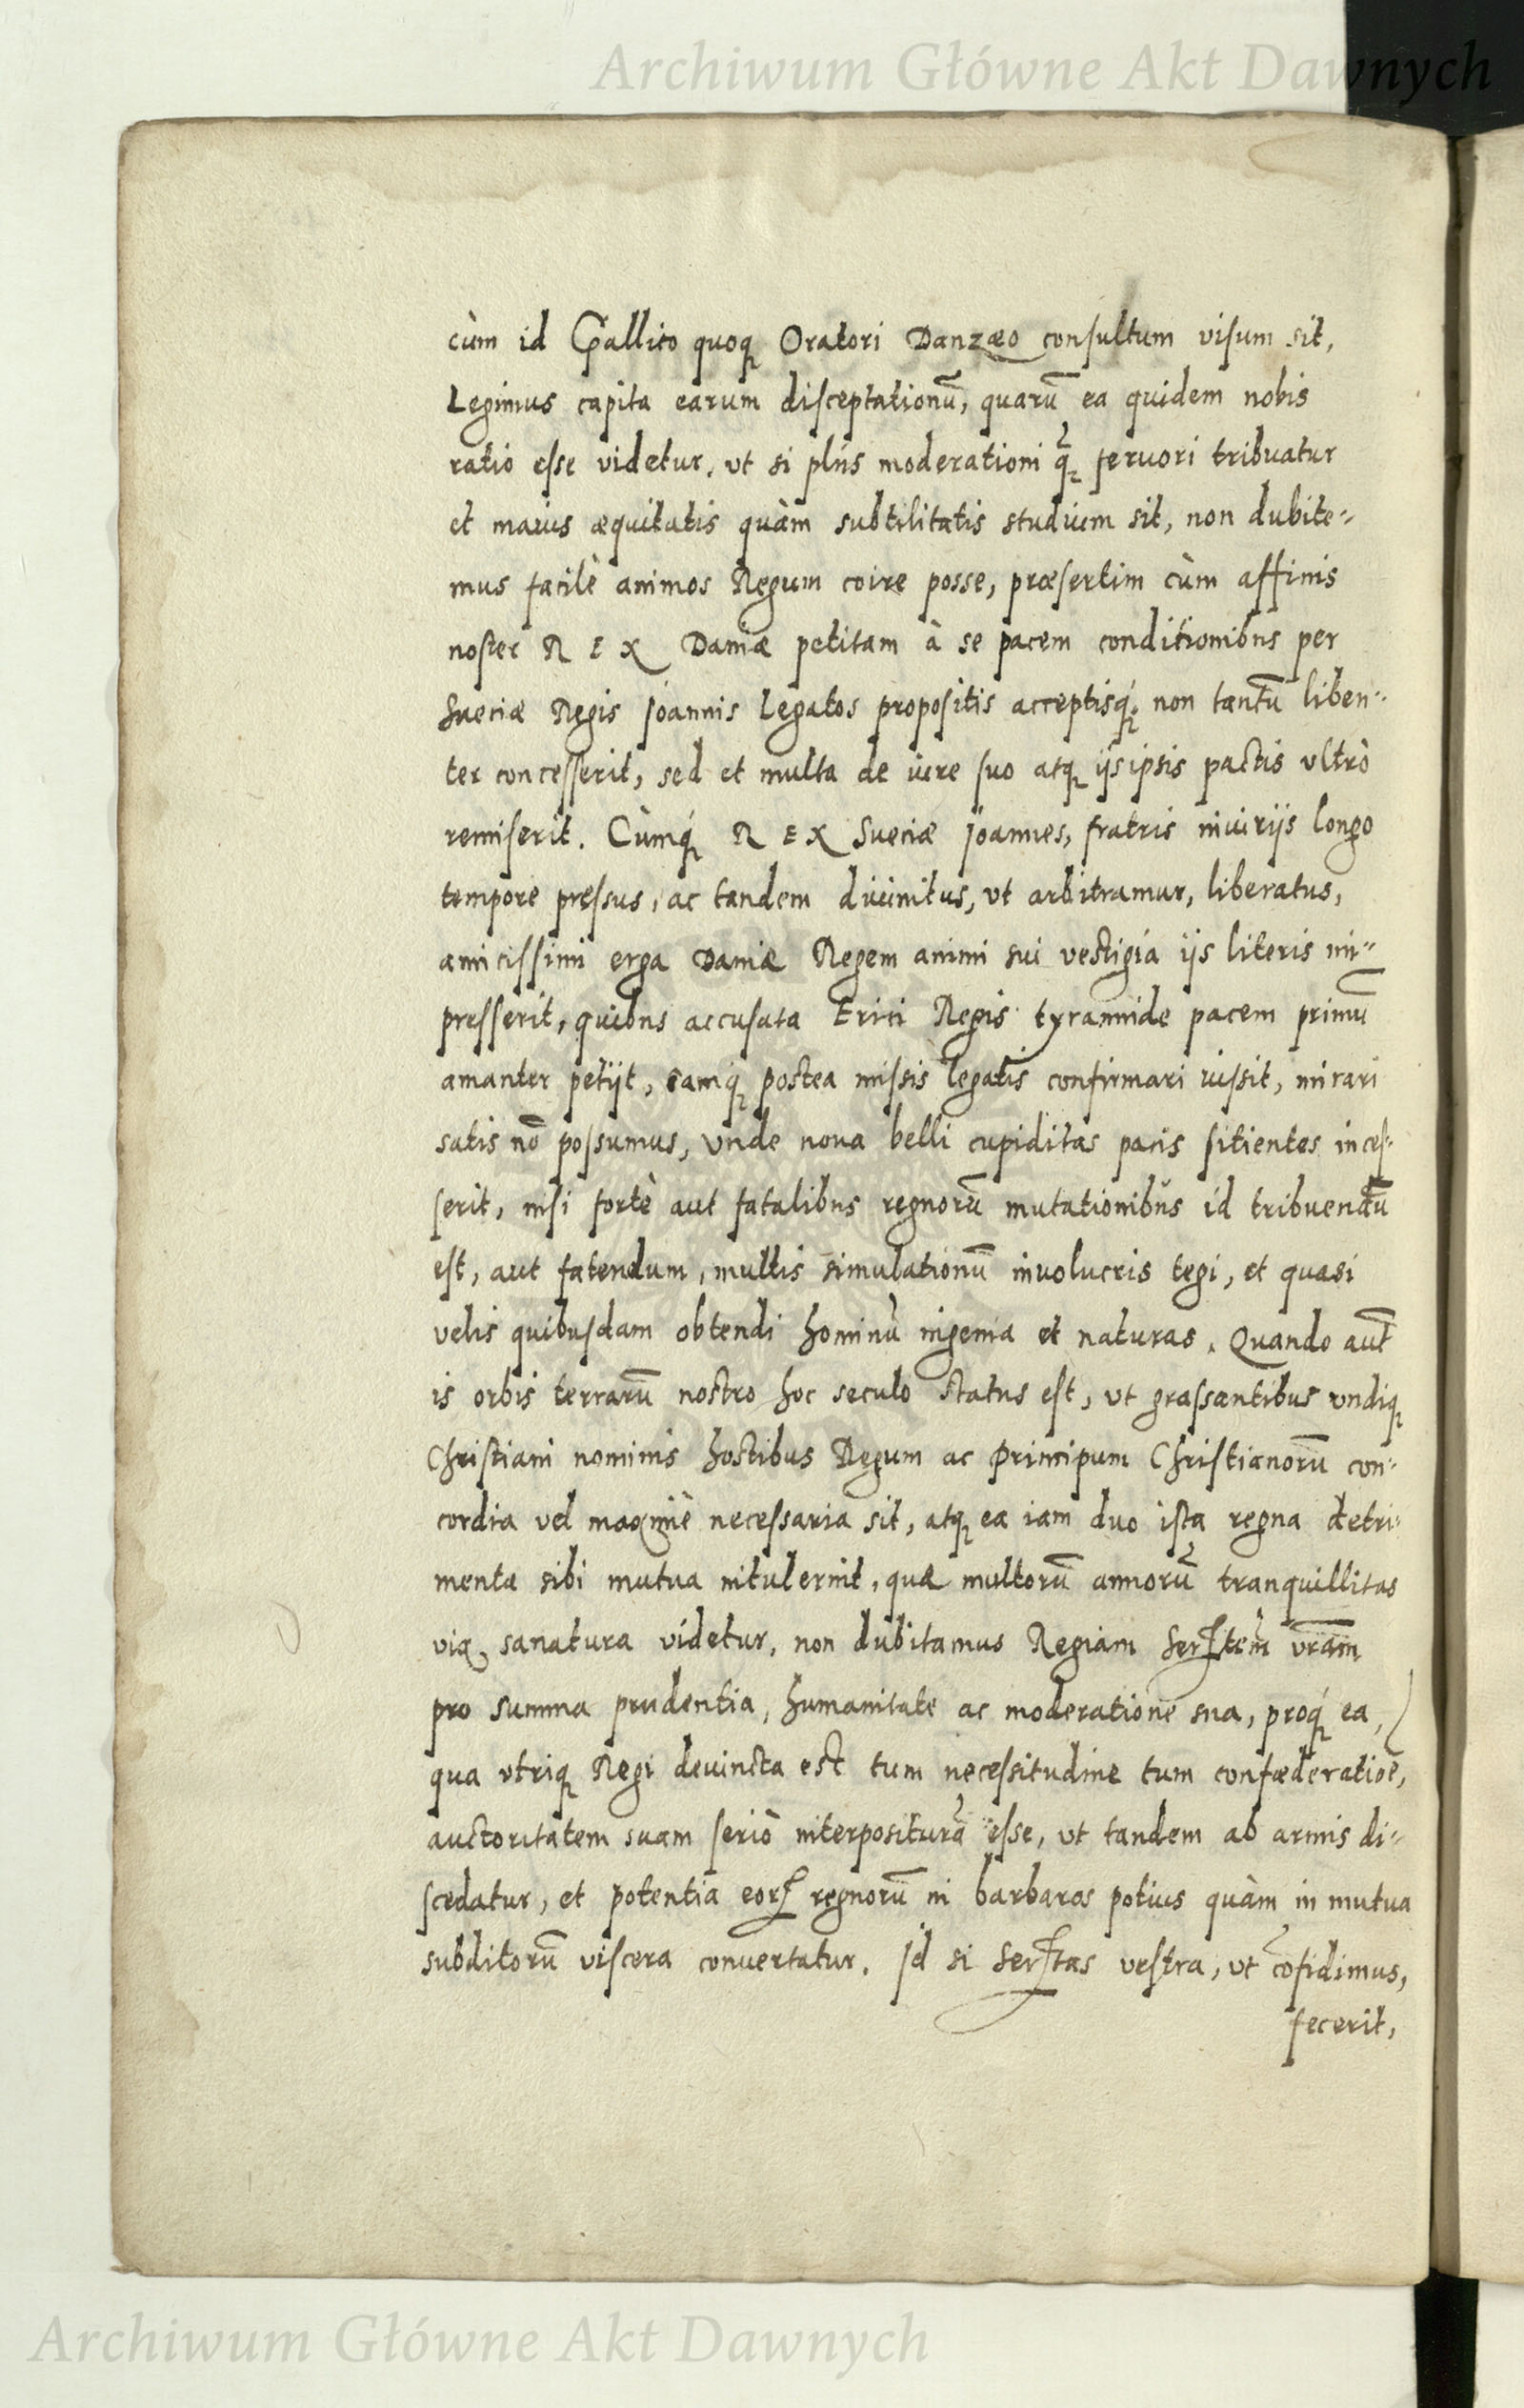 Archiwum Główne Akt Dawnych
cùm id Gallico quoq Oratori Danzæo consultum visum sit,
Legimus capita earum disceptationū, quarū ea quidem nobis
ratio esse videtur, vt si plus moderationi q̃ feruori tribuatur
et maius æquitatis quàm subtilitatis studium sit, non dubite=
mus facilè animos Regum coire posse, præsertim cùm affinis
noster REX Daniæ petitam à se pacem conditionibus per
Sueciæ Regis Joannis Legatos propositis acceptisq́, non tantū liben=
ter concesserit, sed et multa de iure suo atq ijs ipsis pactis vltrò
remiserit. Cùmq́ REX Sueciæ Joannes, fratris iniurijs longo
tempore pressus, ac tandem diuinitus, vt arbitramur, liberatus,
amicissimi erga Daniæ Regem animi sui vestigia ijs literis im=
presserit, quibus accusata Erici Regis tyrannide pacem primū
amanter petijt, eamq́ postea missis legatis confirmari iussit, mirari
satis nō possumus, vnde noua belli cupiditas pacis sitientes inces=
serit, nisi fortè aut fatalibus regnorū mutationibus id tribuendū
est, aut fatendum, multis simulationū inuolucris tegi, et quasi
velis quibusdam obtendi hominū ingenia et naturas. Quando aut̄
is orbis terrarū nostro hoc seculo status est, vt grassantibus vndiq
Christiani nominis hostibus Regum ac Principum Christianorū con=
cordia vel maximè necessaria sit, atq ea iam duo ista regna detri=
menta sibi mutua intulerint, quæ multorū annorū tranquillitas
vix sanatura videtur, non dubitamus Regiam Serᵗᵉᵐ vr̄am
pro summa prudentia, humanitate ac moderatione sua, proq́ ea,
qua vtriq Regi deuincta est tum necessitudine tum confœderatiōe,
auctoritatem suam seriò interpositurā esse, vt tandem ab armis di=
scedatur, et potentia eorꝝ regnorū in barbaros potius quàm in mutua
subditorū viscera conuertatur. Jd si Serᵗᵃˢ vestra, vt cōfidimus,
fecerit,
Archiwum Główne Akt Dawnych